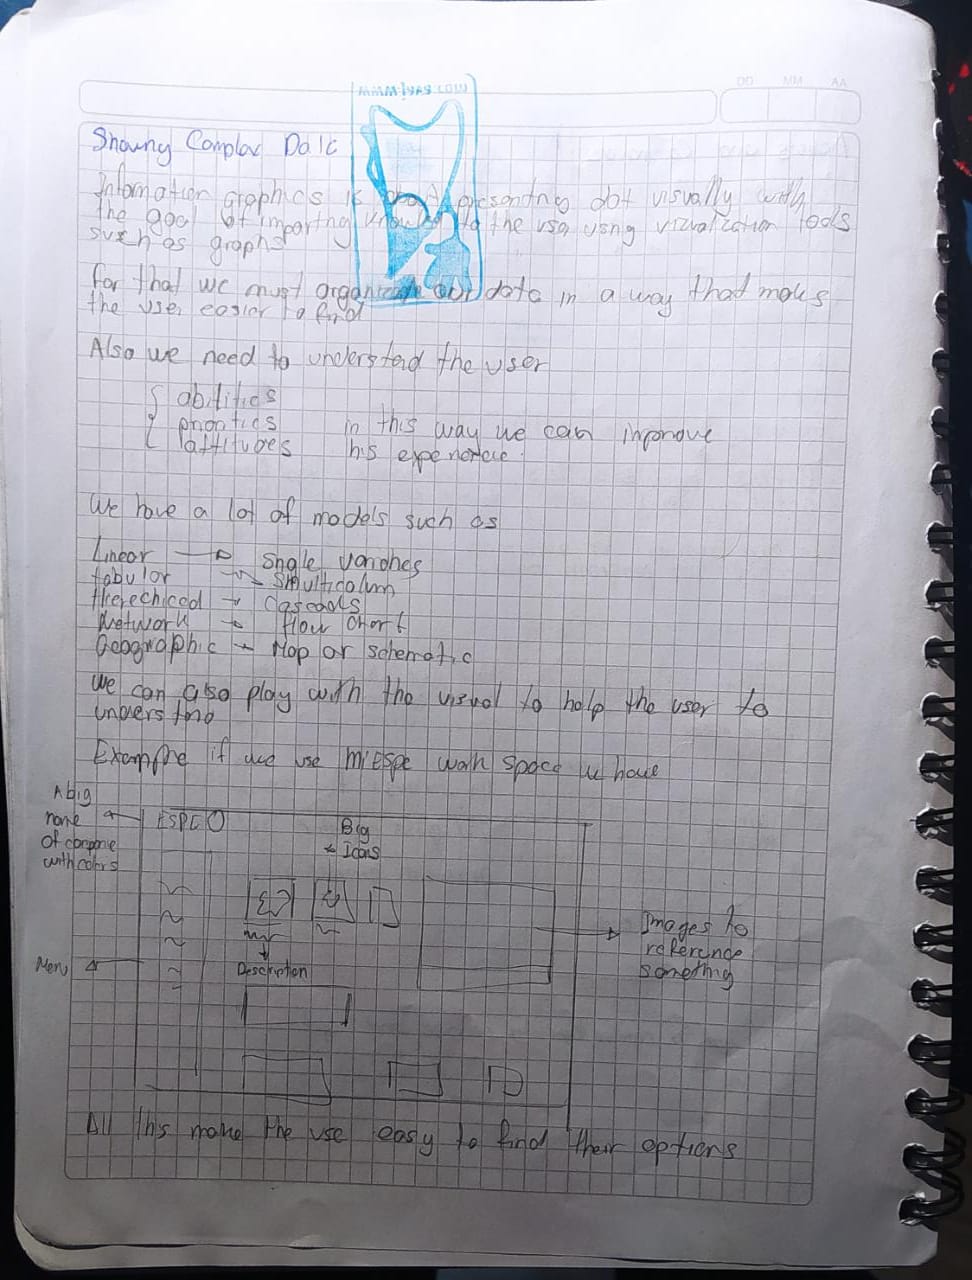 DD MM AA
Showing Complex Data
Information graphics is about presenting dat visually with
the goal of imparting to the user using vizualization tools
such as graphs
for that we must organize our data in a way that makes
the user easier to find
Also we need to understand the user
abilities
in this way we can improve
attitudes his experience.
We have a lot of models such as
Linear → Single
tabular → multicolumn
→ Cascads
Network → Flow Chart
Geographic → Map or schematic
we can also play with the visual to help the user to
Example if we use MiESPE work space we have
A big
name
of
with colors
ESPE
Big
Icons
Description
Menu
Images to
reference
something
All this make the use easy to find their options